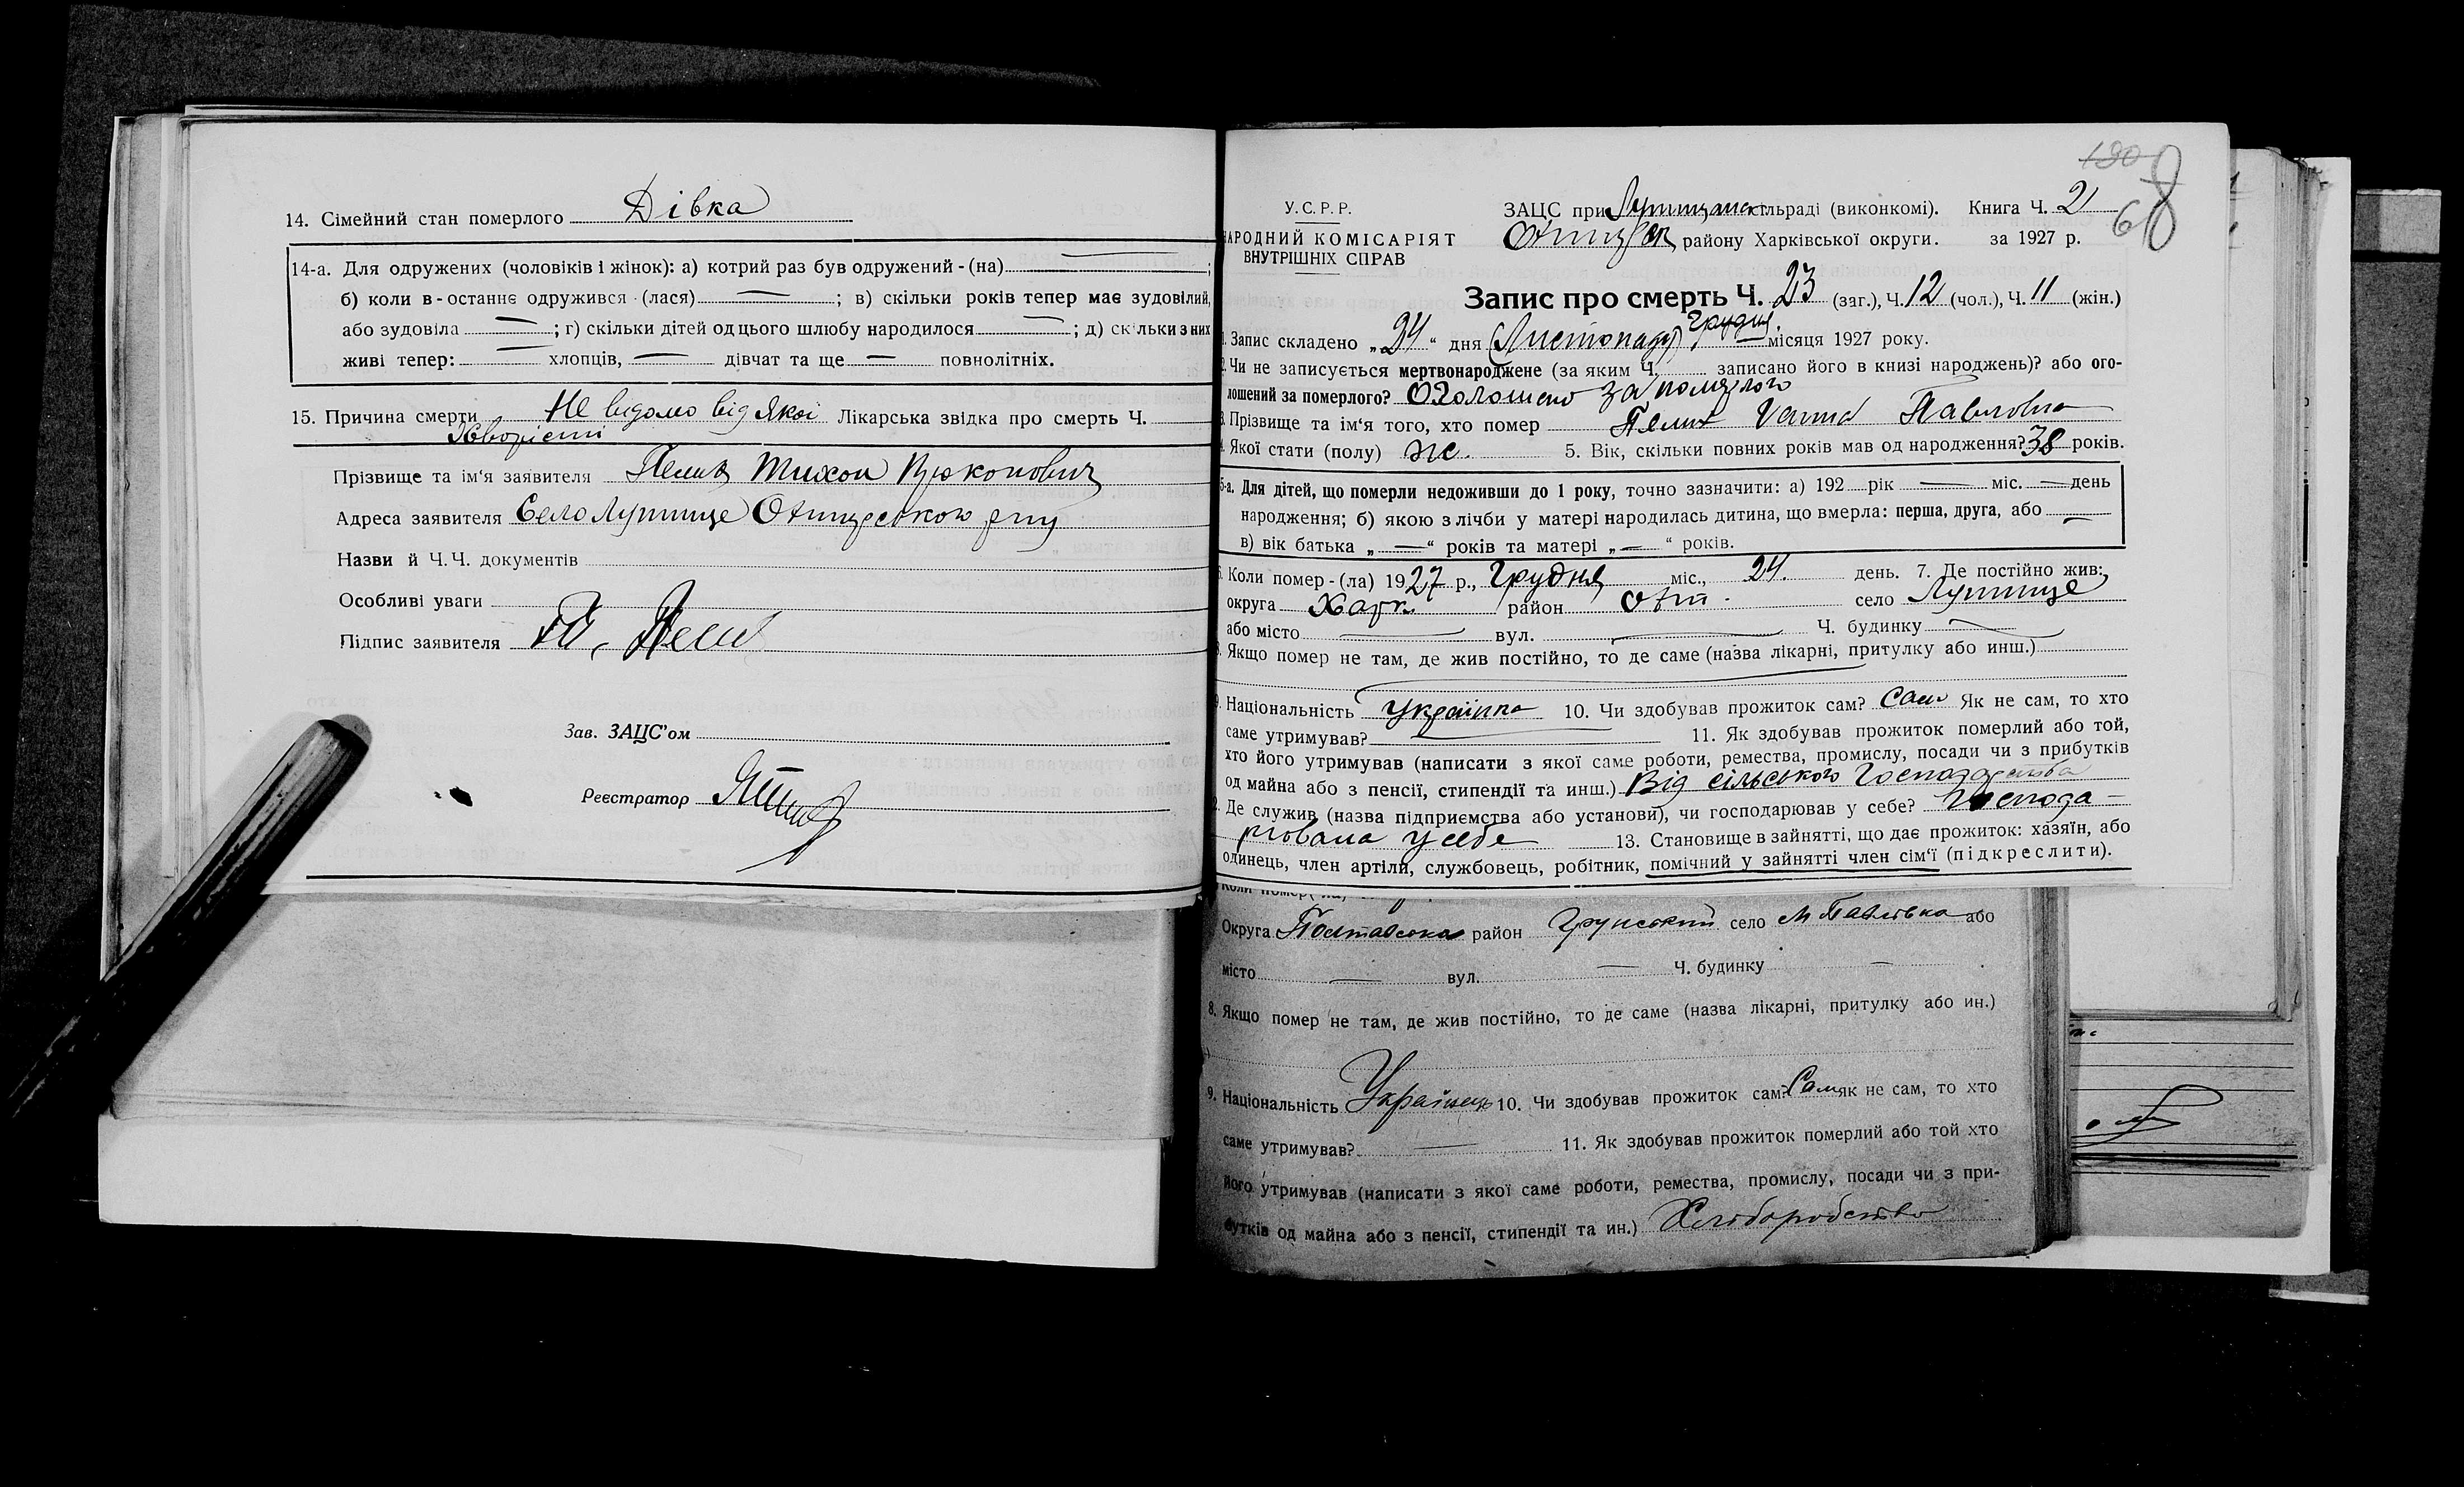 14. Сімейний стан померлого Дівка
14-а. Для одружених (чоловіків і жінок): а) котрий раз був одружений - (на) — ;
б) коли в-останнє одружився - (лася) — ; в) скільки років тепер має зудовілий,
або зудовіла — ; г) скільки дітей од цього шлюбу народилося — ; д) скільки з них
живі тепер: — хлопців, — дівчат та ще — повнолітніх.
15. Причина смерти Не відомо від якої Лікарська звідка про смерть Ч.
Хворісти
Прізвище та ім'я заявителя Тихон
Адреса заявителя Село Лутище
Назви й Ч.Ч. документів
Особливі уваги
Підпис заявителя
Зав. ЗАЦС'ом
Реєстратор
190
68
У.С.Р.Р.
НАРОДНИЙ КОМІСАРІЯТ
ВНУТРІШНІХ СПРАВ
ЗАЦС при сільраді (виконкомі). Книга Ч. 2
району Харківської округи. за 1927 р.
Запис про смерть Ч. 23 (заг.), Ч. 12 (чол.), Ч. 11 (жін.)
1. Запис складено „24“ дня (Листопаду) Грудня місяця 1927 року.
2. Чи не записується мертвонароджене (за яким Ч. записано його в книзі народжень)? або ого-
лошений за померлого? Оголошено за померлого
3. Прізвище та ім'я того, хто помер Павловна
4. Якої стати (полу) ж. 5. Вік, скільки повних років мав од народження? 38 років.
5-а. Для дітей, що померли недоживши до 1 року, точно зазначити: а) 192 рік — міс. — день
народження; б) якою з лічби у матері народилась дитина, що вмерла: перша, друга, або —
в) вік батька „—“ років та матері „—“ років.
6. Коли помер - (ла) 1927 р., Грудня міс., 24. день. 7. Де постійно жив:
округа Харк. район село Лутище
або місто — вул. — Ч. будинку —
8. Якщо помер не там, де жив постійно, то де саме (назва лікарні, притулку або инш.)
9. Національність Українка 10. Чи здобував прожиток сам? Сам Як не сам, то хто
саме утримував? 11. Як здобував прожиток померлий або той,
хто його утримував (написати з якої саме роботи, ремества, промислу, посади чи з прибутків
од майна або з пенсії, стипендії та инш.) Від сільського Господарства
12. Де служив (назва підприємства або установи), чи господарював у себе? Господа-
рювала у себе 13. Становище в зайнятті, що дає прожиток: хазяїн, або
одинець, член артіли, службовець, робітник, помічний у зайнятті член сім'ї (підкреслити).
Коли помер(ла)
Округа Полтавська район Грунський село М Павлівка або
місто — вул. — Ч. будинку —
8. Якщо помер не там, де жив постійно, то де саме (назва лікарні, притулку або ин.)
9. Національність Українець 10. Чи здобував прожиток сам? Сам як не сам, то хто
саме утримував? — 11. Як здобував прожиток померлий або той хто
його утримував (написати з якої саме роботи, ремества, промислу, посади чи з при-
бутків од майна або з пенсії, стипендії та ин.) Хліборобство